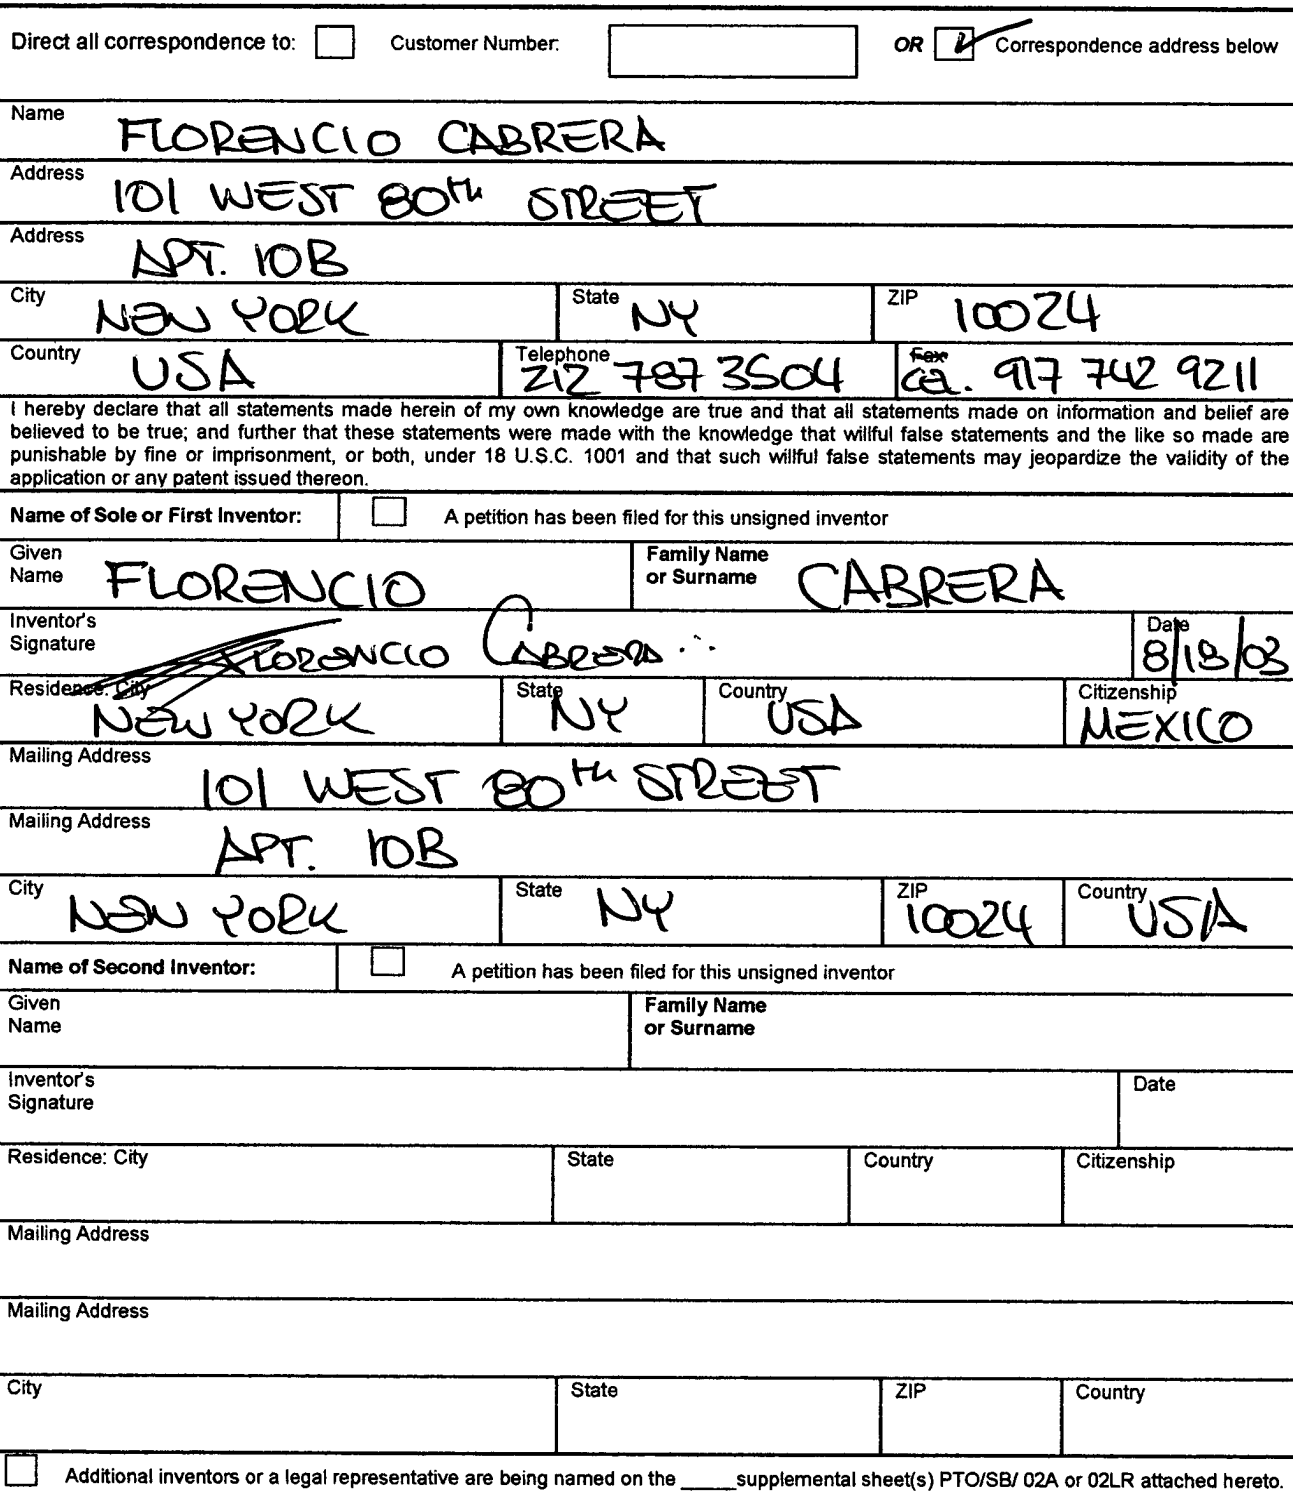 Direct all correspondence to: Customer Number: OR Correspondence address below
Name FLORENCIO CABRERA
Address 101 WEST 80th STREET
Address APT. 10B
City NEW YORK State NY ZIP 10024
Country USA Telephone 212 787 3504 Fax CEL. 917 742 9211
I hereby declare that all statements made herein of my own knowledge are true and that all statements made on information and belief are
believed to be true; and further that these statements were made with the knowledge that willful false statements and the like so made are
punishable by fine or imprisonment, or both, under 18 U.S.C. 1001 and that such willful false statements may jeopardize the validity of the
application or any patent issued thereon.
Name of Sole or First Inventor: A petition has been filed for this unsigned inventor
Given Name FLORENCIO Family Name or Surname CABRERA
Inventor's Signature FLORENCIO CABRERA Date 8/18/03
Residence: City NEW YORK State NY Country USA Citizenship MEXICO
Mailing Address 101 WEST 80th STREET
Mailing Address APT. 10B
City NEW YORK State NY ZIP 10024 Country USA
Name of Second Inventor: A petition has been filed for this unsigned inventor
Given Name Family Name or Surname
Inventor's Signature Date
Residence: City State Country Citizenship
Mailing Address
Mailing Address
City State ZIP Country
Additional inventors or a legal representative are being named on the _____supplemental sheet(s) PTO/SB/ 02A or 02LR attached hereto.